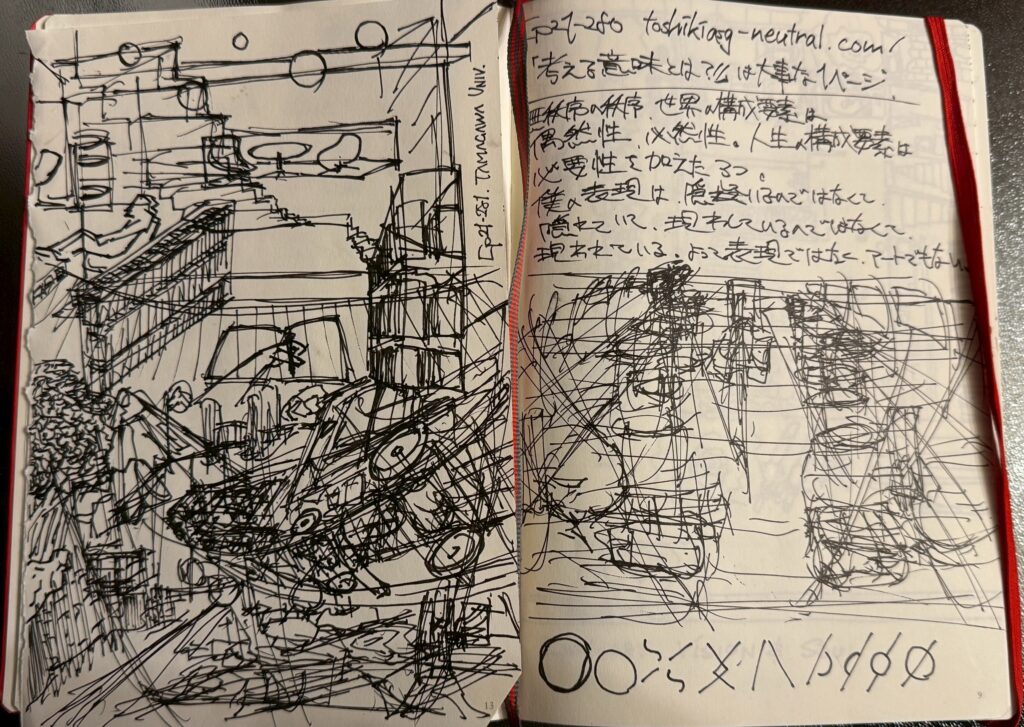 Ep21-281. TAMAGAWA UNIV.
Ep21-280 toshikiasg-neutral.com/
「考える意味とは?」は大事な1ページ
無秩序の秩序 世界の構成要素は
偶然性、必然性。人生の構成要素は
必要性を加えた3つ。
僕の表現は、隠しているのではなくて
隠れていて、現わしているのではなくて、
現われている。よって表現ではなく、アートでもない。
13
9